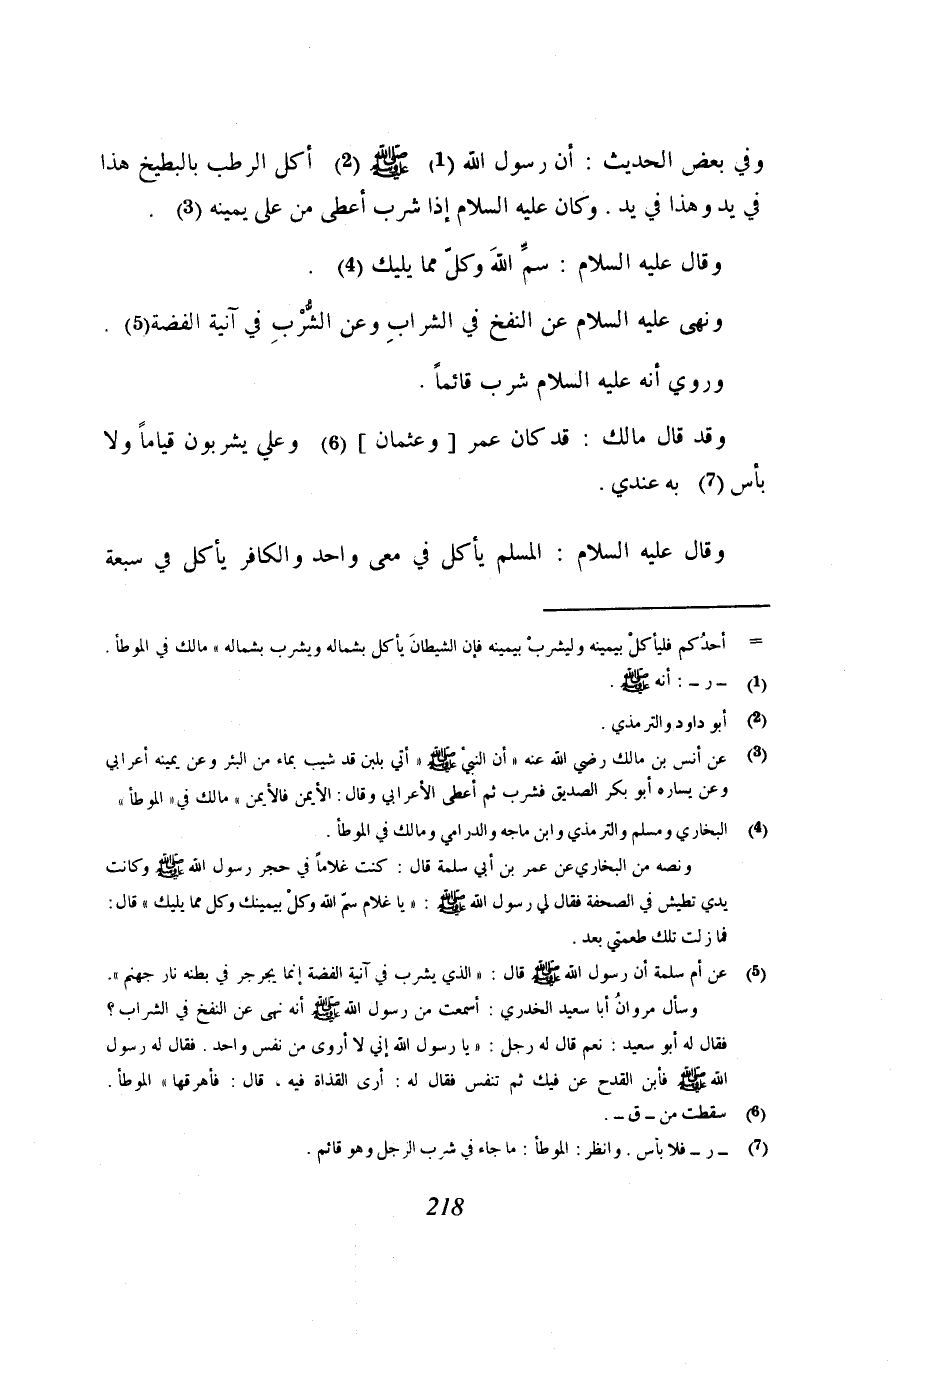 وفي بعض الحديث : أن رسول الله (1) ﷺ (2) أكل الرطب بالبطيخ هذا
في يد وهذا في يد . وكان عليه السلام إذا شرب أعطى من على يمينه (3) .
وقال عليه السلام : سمِّ اللهَ وكلّ مما يليك (4) .
ونهى عليه السلام عن النفخ في الشرابِ وعن الشُّرْبِ في آنية الفضة(5) .
وروي أنه عليه السلام شرب قائماً .
وقد قال مالك : قد كان عمر [ وعثمان ] (6) وعلي يشربون قياماً ولا
بأس (7) به عندي .
وقال عليه السلام : المسلم يأكل في معى واحد والكافر يأكل في سبعة
= أحدُكم فليأكلْ بيمينه وليشربْ بيمينه فإن الشيطانَ يأكل بشماله ويشرب بشماله » مالك في الموطأ .
(1) ـ ر ـ : أنه ﷺ .
(2) أبو داود والترمذي .
(3) عن أنس بن مالك رضي الله عنه « أن النبيْ ﷺ « أتي بلبن قد شيب بماء من البئر وعن يمينه أعرابي
وعن يساره أبو بكر الصديق فشرب ثم أعطى الأعرابي وقال : الأيمن فالأيمن » مالك في « الموطأ »
(4) البخاري ومسلم والترمذي وابن ماجه والدرامي ومالك في الموطأ .
ونصه من البخاري عن عمر بن أبي سلمة قال : كنت غلاماً في حجر رسول الله ﷺ وكانت
يدي تطيش في الصحفة فقال لي رسول الله ﷺ : « يا غلام سمّ الله وكلْ بيمينك وكل مما يليك » قال :
فما زلت تلك طعمتي بعد .
(5) عن أم سلمة أن رسول الله ﷺ قال : « الذي يشرب في آنية الفضة إنما يجرجر في بطنه نار جهنم ».
وسأل مروانُ أبا سعيد الخدري : أسمعت من رسول الله ﷺ أنه نهى عن النفخ في الشراب ؟
فقال له أبو سعيد : نعم قال له رجل : « يا رسول الله إني لا أروى من نفس واحد . فقال له رسول
الله ﷺ فأبن القدح عن فيك ثم تنفس فقال له : أرى القذاة فيه ، قال : فأهرقها » الموطأ .
(6) سقطت من ـ ق ـ .
(7) ـ ر ـ فلا بأس . وانظر : الموطأ : ما جاء في شرب الرجل وهو قائم .
218